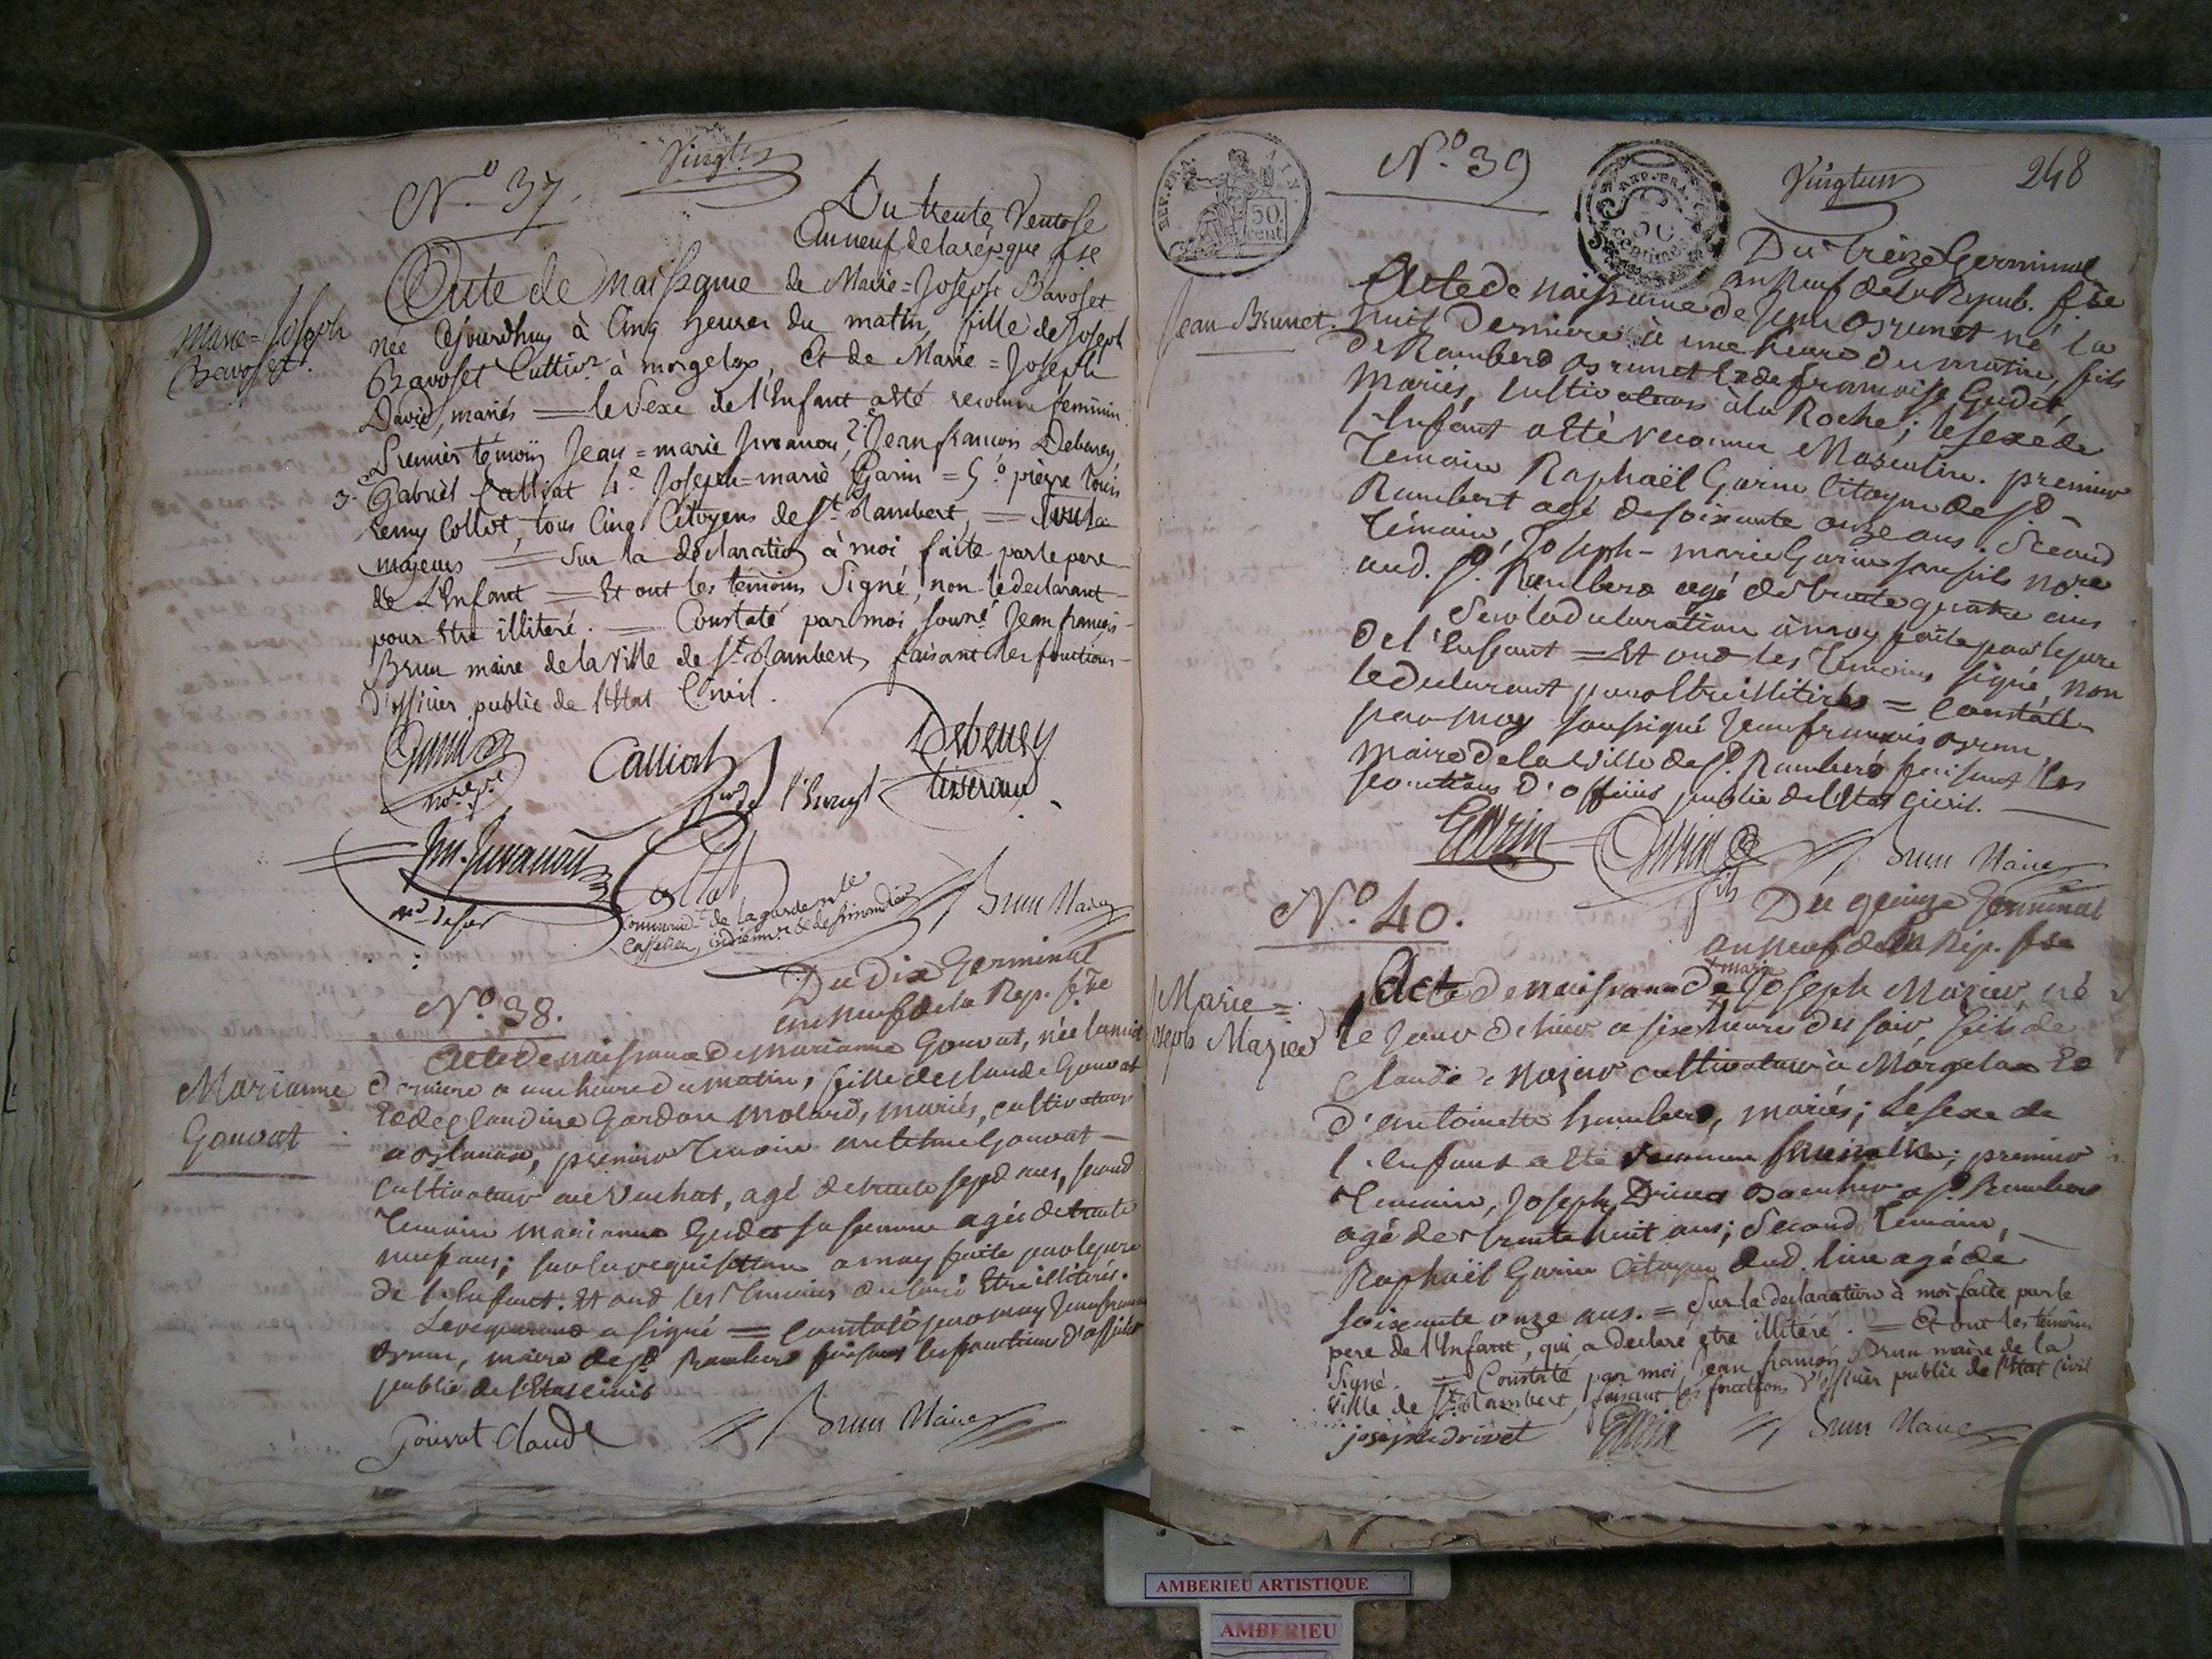 Vingt
N.o 37.
Du trente Ventose
an neuf de la répque f.se
Marie=Joseph
Bavoset.
Acte de Naissance de Marie=Joseph Bavoset
née Cejourdhuy à Cinq heures du matin, fille de Joseph
Bavoset Cultiv.r à morgelas, Et de Marie=Joseph
David, mariés = le Sexe de l'Enfant a été reconnu feminin.
Premier témoin Jean=marie Juvanon, 2.e Jean françois Debeney
3.e Gabriel Calliat 4.e Joseph=marie Garin = 5.o pièrre Louis
remy Collot, tous Cinq Citoyens de St Rambert, =
majeurs = Sur la déclaration à moi faite par le pere
de L'Enfant = Et ont les témoins Signé, non le déclarant
pour être illitéré. = Constaté par moi sousné Jean françois
Brun maire de la Ville de St Rambert, faisant les fonctions
d'officier public de l'Etat Civil.
Garin
no.re p.c
Calliat
Debeney
Jm. Juvanon
Md de fer
Collot
Command.t de la garde n.le
Brun Maire
N.o 38.
Du Dix Germinal
an neuf de la Rep. f.se
Marianne
Gouvat
Acte de naissance de Marianne Gouvat, née la nuit
derniere a une heure du matin, fille de Claude Gouvat
Et de Claudine Gardon Molard, mariés, cultivateurs
a Blanaz, premier Temoin antelme Gouvat
Cultivateur au Vachat, agé de trente sept ans, second
Temoin Marianne Gudet sa femme agée de trente
neuf ans; sur la requisition a moy faite par le pere
de l'Enfant. Et ont les Temoins declaré Etre illitérés.
Le requerant a signé = Constaté par moy Jean françois
Brun, maire de St Rambert faisant les fonctions d'officier
public de l'Etat civil
Gouvat Claude
Brun Maire
REP. FRA. AIN.
50 cent
N.o 39
REP. FRA.
50 centimes
Vingt un
248
Du treize Germinal
an neuf de la Repub. f.se
Jean Brunet.
Acte de naissance de Jean Brunet né la
nuit Derniere à une heure du matin, fils
de Rambert Brunet Et de françoise Gudet,
Mariés, cultivateurs à la Roche; le sexe de
l'Enfant a été reconnu Masculin. premier
Temoin Raphaël Garin Citoyen de St
Rambert agé de soixante onze ans. Second
Témoin, Joseph-marie Garin son fils no.re
aud. St Rambert agé de trente quatre ans
Sur la declaration à moy faite par le pere
de l'Enfant = Et ont les Temoins signé, non
le declarant pour Etre illitéré = Constaté
par moy soussigné Jean françois Brun,
Maire de la Ville de St Rambert faisant les
fonctions d'officier public de l'Etat civil.
Garin
Garin
fils
Brun Maire
N.o 40.
Du quinze Germinal
an neuf de la Rép. f.se
Marie=
Joseph Mazier
marie
Acte de naissance de Joseph Mazier, né
le jour de hier a six heures du soir, fils de
Claude Mazier cultivateur à Morgelas Et
d'antoinette humbert, mariés; Le sexe de
l'Enfant a été reconnu; premier
Temoin, Joseph Drivet a St Rambert
agé de trente huit ans; Second Temoin,
Raphaël Garin Citoyen dud. lieu agé de
soixante onze ans. = Sur la declaration à moi faite par le
pere de l'Enfant, qui a declaré etre illitéré. = Et ont les témoins
Signé. = Constaté par moi, Jean françois Brun maire de la
ville de St Rambert, faisant les fonctions d'officier public de l'Etat Civil
joseph drivet
Garin
Brun Maire
AMBERIEU ARTISTIQUE
AMBERIEU